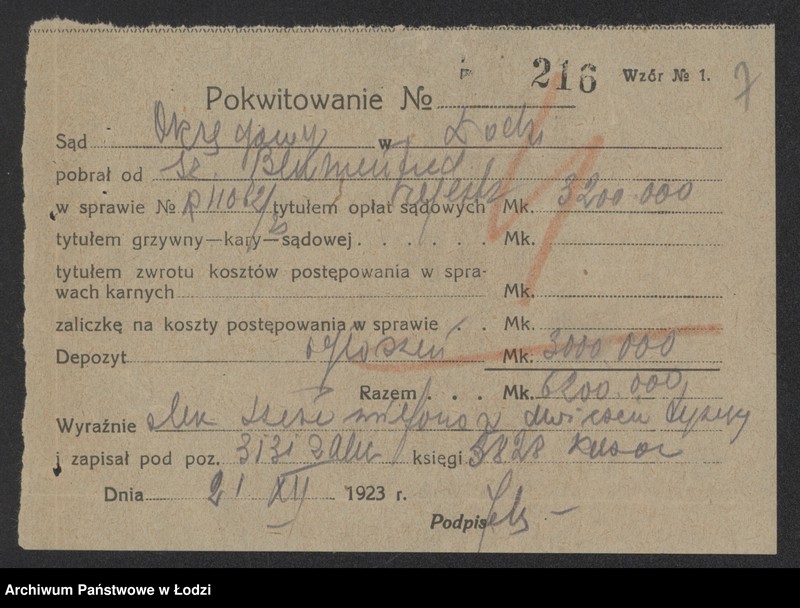 216 Wzór № 1. 7
Pokwitowanie №
Sąd Okręgowy w Łodzi
pobrał od Sz. Blumenfeld
w sprawie № R 11062/23 tytułem opłat sądowych Mk. 3200.000
tytułem grzywny—kary—sądowej Mk.
tytułem zwrotu kosztów postępowania w spra-
wach karnych Mk.
zaliczkę na koszty postępowania w sprawie Mk.
Depozyt ogłoszeń Mk. 3000.000
Razem Mk. 6200.000
Wyraźnie Mk sześć miljonów dwieście tysięcy
i zapisał pod poz. 3131 księgi 3828
Dnia 21 XII 1923 r.
Podpis
Archiwum Państwowe w Łodzi